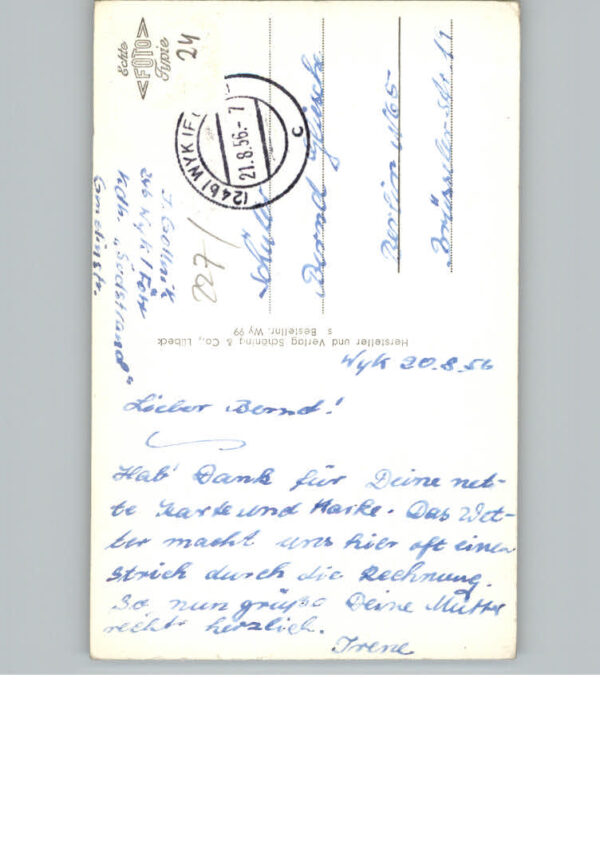 Echte
<FOTO>
Typie
24
(24b) WYK (F
21.8.56.-7
c
J. Gollnik
24b Wyk / Föhr
Kdh. „Südstrand"
Gmelinstr.
227/
Schüler
Bernd
Berlin N 65
Brüsseler-Str. 11
Hersteller und Verlag Schöning & Co., Lübeck
s Bestellnr. Wy 99
Wyk 20.8.56
Lieber Bernd!
Hab' Dank für Deine net-
te Karte und Marke. Das Wet-
ter macht uns hier oft einen
Strich durch die Rechnung.
So, nun grüße Deine Mutter
recht herzlich.
Irene